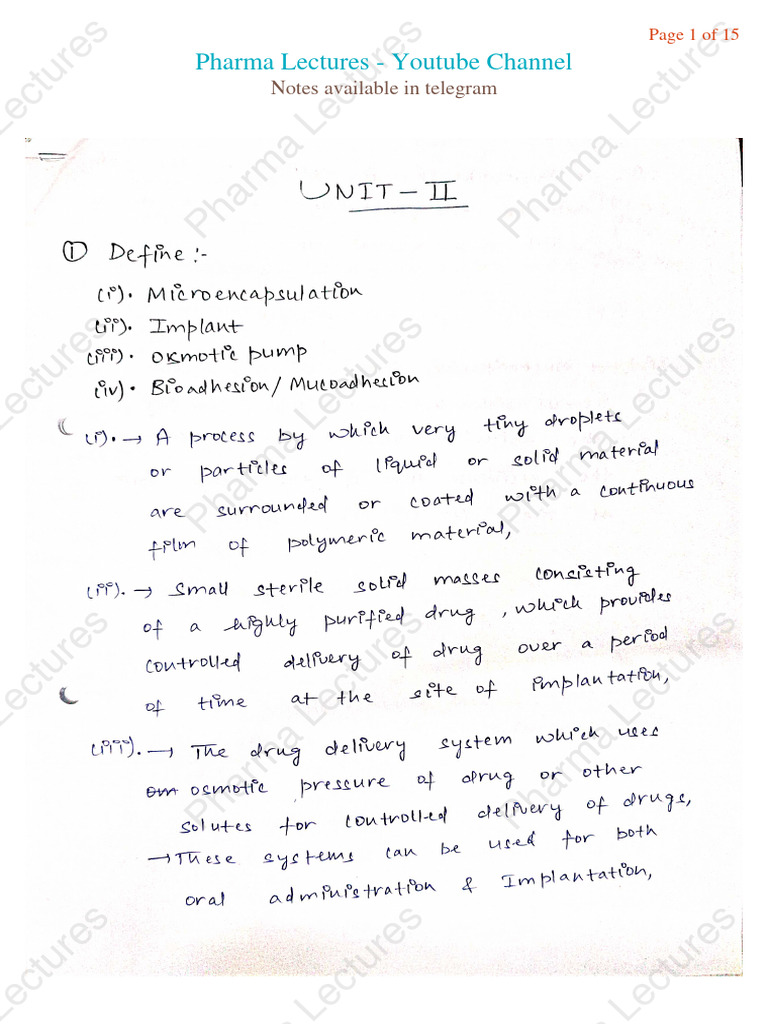 Page 1 of 15
Pharma Lectures - Youtube Channel
Notes available in telegram
UNIT - II
① Define :-
(i). Microencapsulation
(ii). Implant
(iii). osmotic pump
(iv). Bioadhesion / Mucoadhesion
(i). → A process by which very tiny droplets
or particles of liquid or solid material
are surrounded or coated with a continuous
film of polymeric material,
(ii). → Small sterile solid masses consisting
of a highly purified drug, which provides
controlled delivery of drug over a period
of time at the site of implantation,
(iii). → The drug delivery system which uses
osmotic pressure of drug or other
solutes for controlled delivery of drugs,
→ These systems can be used for both
oral administration & Implantation,
Pharma Lectures